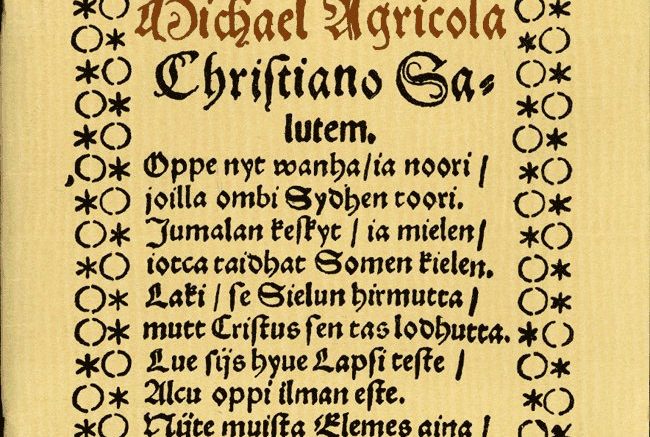 Michael Agricola
Chriſtiano Sa⸗
lutem.
Oppe nyt wanha/ia noori /
joilla ombi Sydhen toori.
Jumalan keſkyt / ia mielen/
iotca taidhat Somen kielen.
Laki / ſe Sielun hirmutta /
mutt Criſtus ſen tas lodhutta.
Lue ſijs hyue Lapſi teſte /
Alcu oppi ilman eſte.
Nijte muiſta Elemes aina /